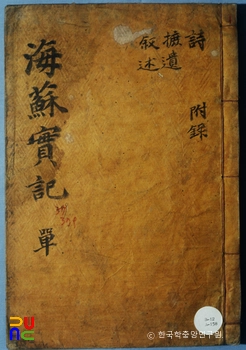 詩
摭遺
敘述
附錄
海蘇實記
單
© 한국학중앙연구원